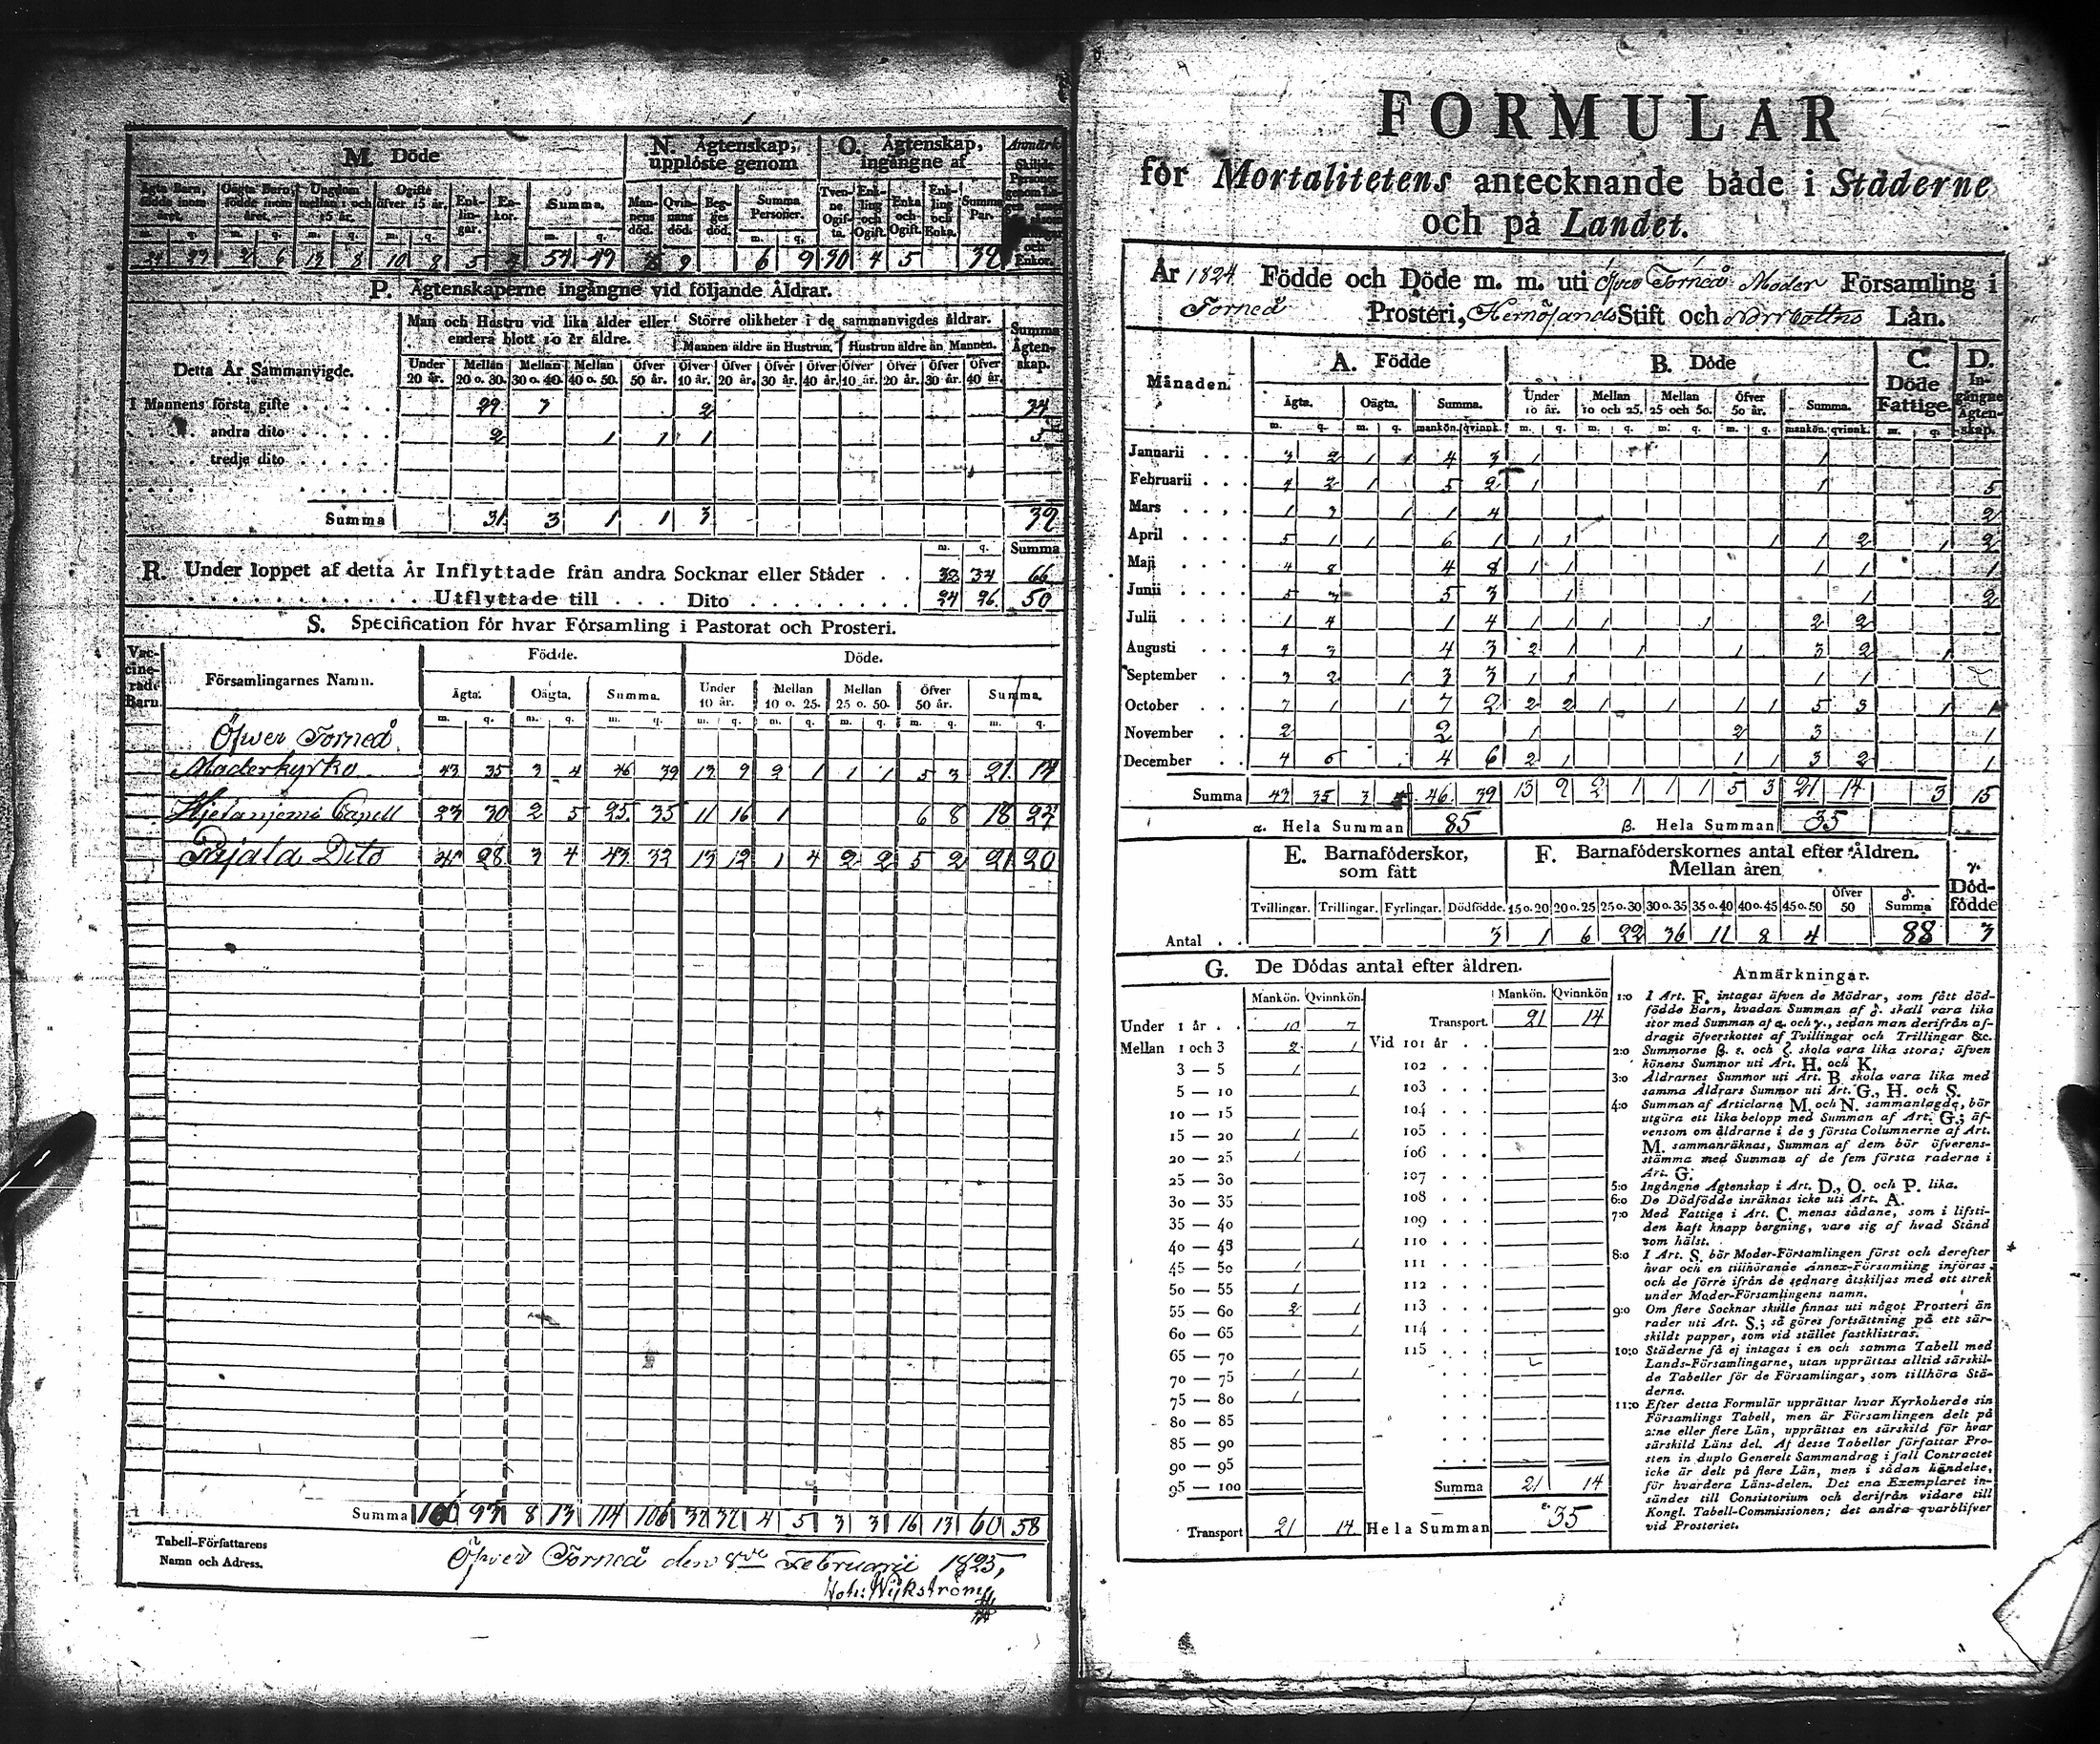 M. Döde
N. Ägtenskap, upplöste genom
O. Ägtenskap, ingångne af
Anmärk.
Ägta Barn, födde inom året.
Oägta Barn, födde inom året.
Ungdom mellan 1 och 15 år.
Ogifte öfver 15 år.
Enk-lin-gar.
En-kor.
Summa.
Man-nens död.
Qvin-nans död.
Beg-ges död.
Summa Personer.
Tven-ne Ogif-ta.
Enk-ling och Ogift.
Enka och Ogift.
Enk-ling och Enka.
Summa Par.
m. q. m. q. m. q. m. q. m. q. m. q.
12 8 10 8 5 57 49 9 6 9 30 4 5 39
P. Ägtenskaperne ingångne vid följande Åldrar.
Detta År Sammanvigde.
Man och Hustru vid lika ålder eller endera blott 10 år äldre.
Större olikheter i de sammanvigdes åldrar.
Mannen äldre än Hustrun. Hustrun äldre än Mannen.
Summa Ägten-skap.
Under 20 år. Mellan 20 o. 30. Mellan 30 o. 40. Mellan 40 o. 50. Öfver 50 år. Öfver 10 år. Öfver 20 år. Öfver 30 år. Öfver 40 år. Öfver 10 år. Öfver 20 år. Öfver 30 år. Öfver 40 år.
I Mannens första gifte 29 3 2 34
andra dito 2 1 1 1 5
tredje dito
Summa 31 3 1 1 3 39
m. q. Summa
R. Under loppet af detta År Inflyttade från andra Socknar eller Städer 32 34 66
Utflyttade till . . . Dito 24 26 50
S. Specification för hvar Församling i Pastorat och Prosteri.
Vac-cine-rade Barn.
Församlingarnes Namn.
Födde. Döde.
Ägta. Oägta. Summa. Under 10 år. Mellan 10 o. 25. Mellan 25 o. 50. Öfver 50 år. Summa.
m. q. m. q. m. q. m. q. m. q. m. q. m. q. m. q.
Öfver Torneå
Moderkyrko 43 35 3 4 46 39 13 9 2 1 1 1 5 3 21 14
Hjetanjemi Capell 23 30 2 5 25 35 11 16 1 6 8 18 24
Pajala Dito 28 3 4 43 32 13 12 1 4 2 2 5 2 21 20
Summa 106 93 8 13 114 106 37 37 4 5 3 3 16 13 60 58
Tabell-Författarens Namn och Adress.
Öfver Torneå den 8de Februarii 1825,
Joh: Wijkström
FORMULAR
för Mortalitetens antecknande både i Städerne
och på Landet.
År 1824 Födde och Döde m. m. uti Öfver Torneå Moder Församling i
Torneå Prosteri, Hernösands Stift och Norrbottns Län.
Månaden.
A. Födde
B. Döde
C. Döde Fattige.
D. In-gångne Ägten-skap.
Ägta. Oägta. Summa. Under 10 år. Mellan 10 och 25. Mellan 25 och 50. Öfver 50 år. Summa.
m. q. m. q. mankön. qvinnk. m. q. m. q. m. q. m. q. mankön. qvinnk. m. q.
Januarii 3 2 1 1 4 3 1 1
Februarii 4 2 1 5 2 1 1 5
Mars 1 3 1 1 4 2
April 5 1 1 6 1 1 1 1 1 2 1 2
Maji 4 8 4 8 1 1 1 1 1
Junii 5 3 5 3 1 1 2
Julii 1 4 1 4 1 1 1 1 2 2
Augusti 4 3 4 3 2 1 1 1 3 2 1
September 3 2 1 3 3 1 1 1 1
October 7 1 1 7 2 2 2 1 1 1 1 5 3 1 1
November 2 2 1 2 3 1
December 4 6 4 6 2 1 1 1 3 2 1
Summa 43 35 3 4 46 39 13 9 2 1 1 1 5 3 21 14 3 15
α. Hela Summan 85 β. Hela Summan 35
E. Barnaföderskor, som fått
F. Barnaföderskornes antal efter Åldren. Mellan åren
γ. Död-födde
Tvillingar. Trillingar. Fyrlingar. Dödfödde. 15 o. 20 20 o. 25 25 o. 30 30 o. 35 35 o. 40 40 o. 45 45 o. 50 öfver 50 δ. Summa
Antal 3 1 6 22 36 11 8 4 88 3
G. De Dödas antal efter åldren.
Mankön. Qvinnkön. Mankön. Qvinnkön
Under 1 år 10 7 Transport. 21 14
Mellan 1 och 3 2 1 Vid 101 år
3 — 5 1 102
5 — 10 1 103
10 — 15 104
15 — 20 1 1 105
20 — 25 1 106
25 — 30 107
30 — 35 108
35 — 40 109
40 — 45 1 110
45 — 50 1 111
50 — 55 1 112
55 — 60 2 1 113
60 — 65 1 114
65 — 70 115
70 — 75 1 1
75 — 80 1
80 — 85
85 — 90
90 — 95
95 — 100 Summa 21 14
Transport 21 14 Hela Summan ε. 35
Anmärkningar.
1:o I Art. F. intagas äfven de Mödrar, som fått död-
födde Barn, hvadan Summan af δ. skall vara lika
stor med Summan af α. och γ., sedan man derifrån af-
dragit öfverskottet af Tvillingar och Trillingar &c.
2:o Summorne β. ε. och ζ. skola vara lika stora; äfven
könens Summor uti Art. H. och K.
3:o Åldrarnes Summor uti Art. B. skola vara lika med
samma Åldrars Summor uti Art. G., H. och S.
4:o Summan af Articlarne M. och N. sammanlagde, bör
utgöra ett lika belopp med Summan af Art. G.; äf-
vensom om åldrarne i de 3 första Columnerne af Art.
M. sammanräknas, Summan af dem bör öfverens-
stämma med Summan af de fem första raderne i
Art. G.
5:o Ingångne Ägtenskap i Art. D., O. och P. lika.
6:o De Dödfödde inräknas icke uti Art. A.
7:o Med Fattige i Art. C. menas sådane, som i lifsti-
den haft knapp bergning, vare sig af hvad Stånd
som hälst.
8:o I Art. S. bör Moder-Församlingen först och derefter
hvar och en tillhörande Annex-Församling införas,
och de förre ifrån de sednare åtskiljas med ett strek
under Moder-Församlingens namn.
9:o Om flere Socknar skulle finnas uti något Prosteri än
rader uti Art. S.; så göres fortsättning på ett sär-
skildt papper, som vid stället fastklistras.
10:o Städerne få ej intagas i en och samma Tabell med
Lands-Församlingarne, utan upprättas alltid särskil-
de Tabeller för de Församlingar, som tillhöra Stä-
derne.
11:o Efter detta Formulär upprättar hvar Kyrkoherde sin
Församlings Tabell, men är Församlingen delt på
2:ne eller flere Län, upprättas en särskild för hvar
särskild Läns del. Af desse Tabeller författar Pro-
sten in duplo Generelt Sammandrag i fall Contractet
icke är delt på flere Län, men i sådan händelse,
för hvardera Läns-delen. Det ena Exemplaret in-
sändes till Consistorium och derifrån vidare till
Kongl. Tabell-Commissionen; det andra qvarblifver
vid Prosteriet.